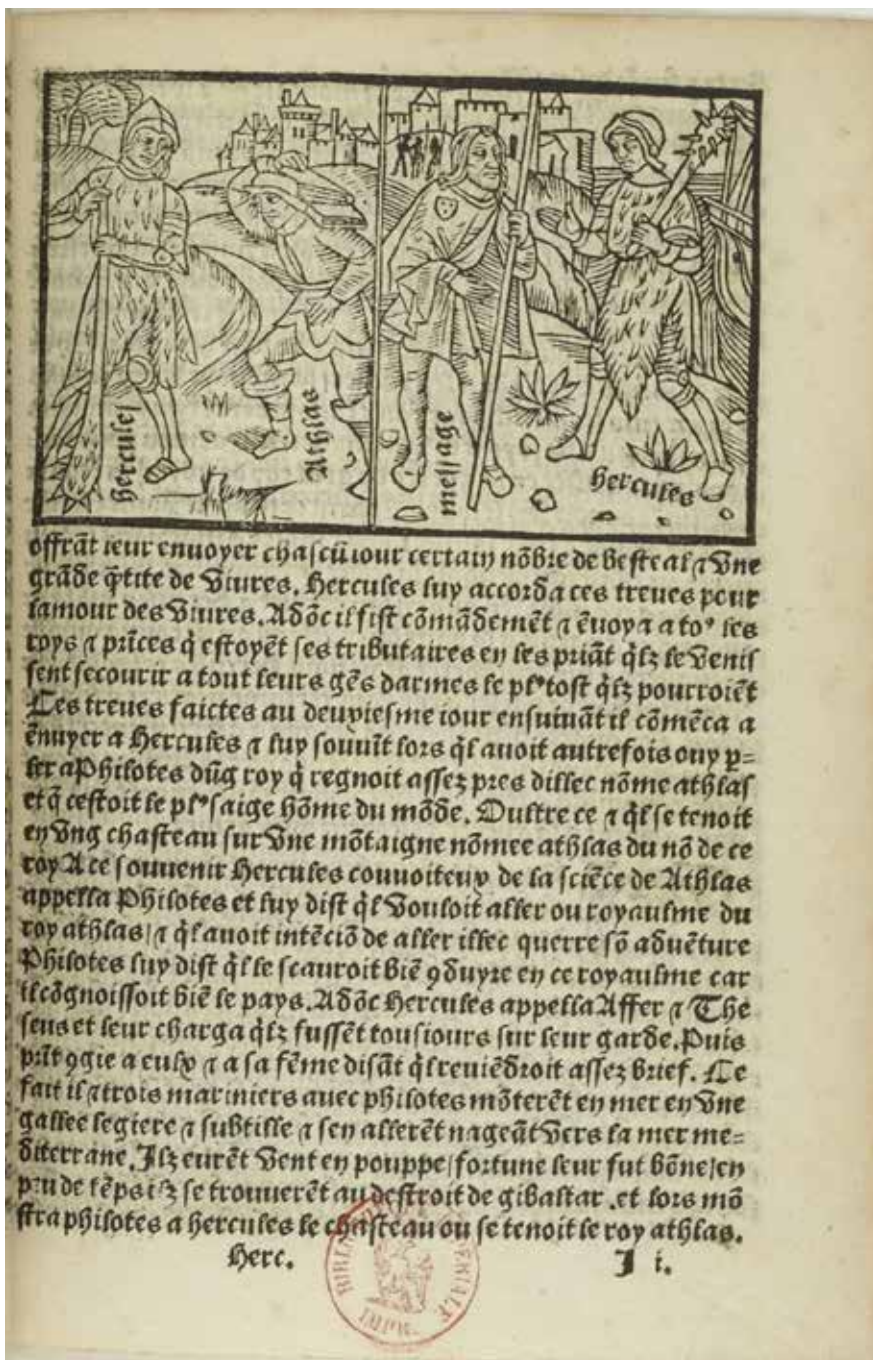 hercules
Athlas
message
hercules
offrāt leur enuoyer chascū iour certain nōbre de besteal ⁊ vne
grāde q̄tite de viures. Hercules luy accorda ces treues pour
lamour des viures. Adōc il fist cōmādemēt ⁊ ēuoya a toꝰ les
roys ⁊ prīces q̄ estoyēt ses tributaires en les priāt q̄lz le venis
sent secourir a tout leurs gēs darmes le plꝰ tost q̄lz pourroiēt
Les treues faictes au deuxiesme iour ensuiuāt il cōmēca a
ēnuyer a Hercules ⁊ luy souuīt lors q̄l auoit autrefois ouy p̱=
ler a Philotes dūg roy q̄ regnoit assez pres dillec nōme athlas
et q̄ cestoit le plꝰ saige hōme du mōde. Oultre ce ⁊ q̄l se tenoit
en vng chasteau sur vne mōtaigne nōmee athlas du nō de ce
roy A ce souuenir Hercules conuoiteux de la sciēce de Athlas
appella Philotes et luy dist q̄l vouloit aller ou royaulme du
roy athlas / ⁊ q̄l auoit intēciō de aller illec querre sō aduēture
Philotes luy dist q̄l le scauroit biē ꝯduyre en ce royaulme car
il cōgnoissoit biē le pays. Adōc Hercules appella Affer ⁊ The
seus et leur charga q̄lz fussēt tousiours sur leur garde. Puis
prīt ꝯgie a eulx ⁊ a sa fēme disāt q̄l reuiēdroit assez brief. Ce
fait il ⁊ trois mariniers auec philotes mōterēt en mer en vne
gallee legiere ⁊ subtille ⁊ sen allerēt nageāt vers la mer me=
diterrane. Ilz eurēt vent en pouppe / fortune leur fut bōne / en
peu de tēps ilz se trouuerēt au destroit de gibaltar . et lors mō
stra philotes a hercules le chasteau ou se tenoit le roy athlas.
Herc. I i.